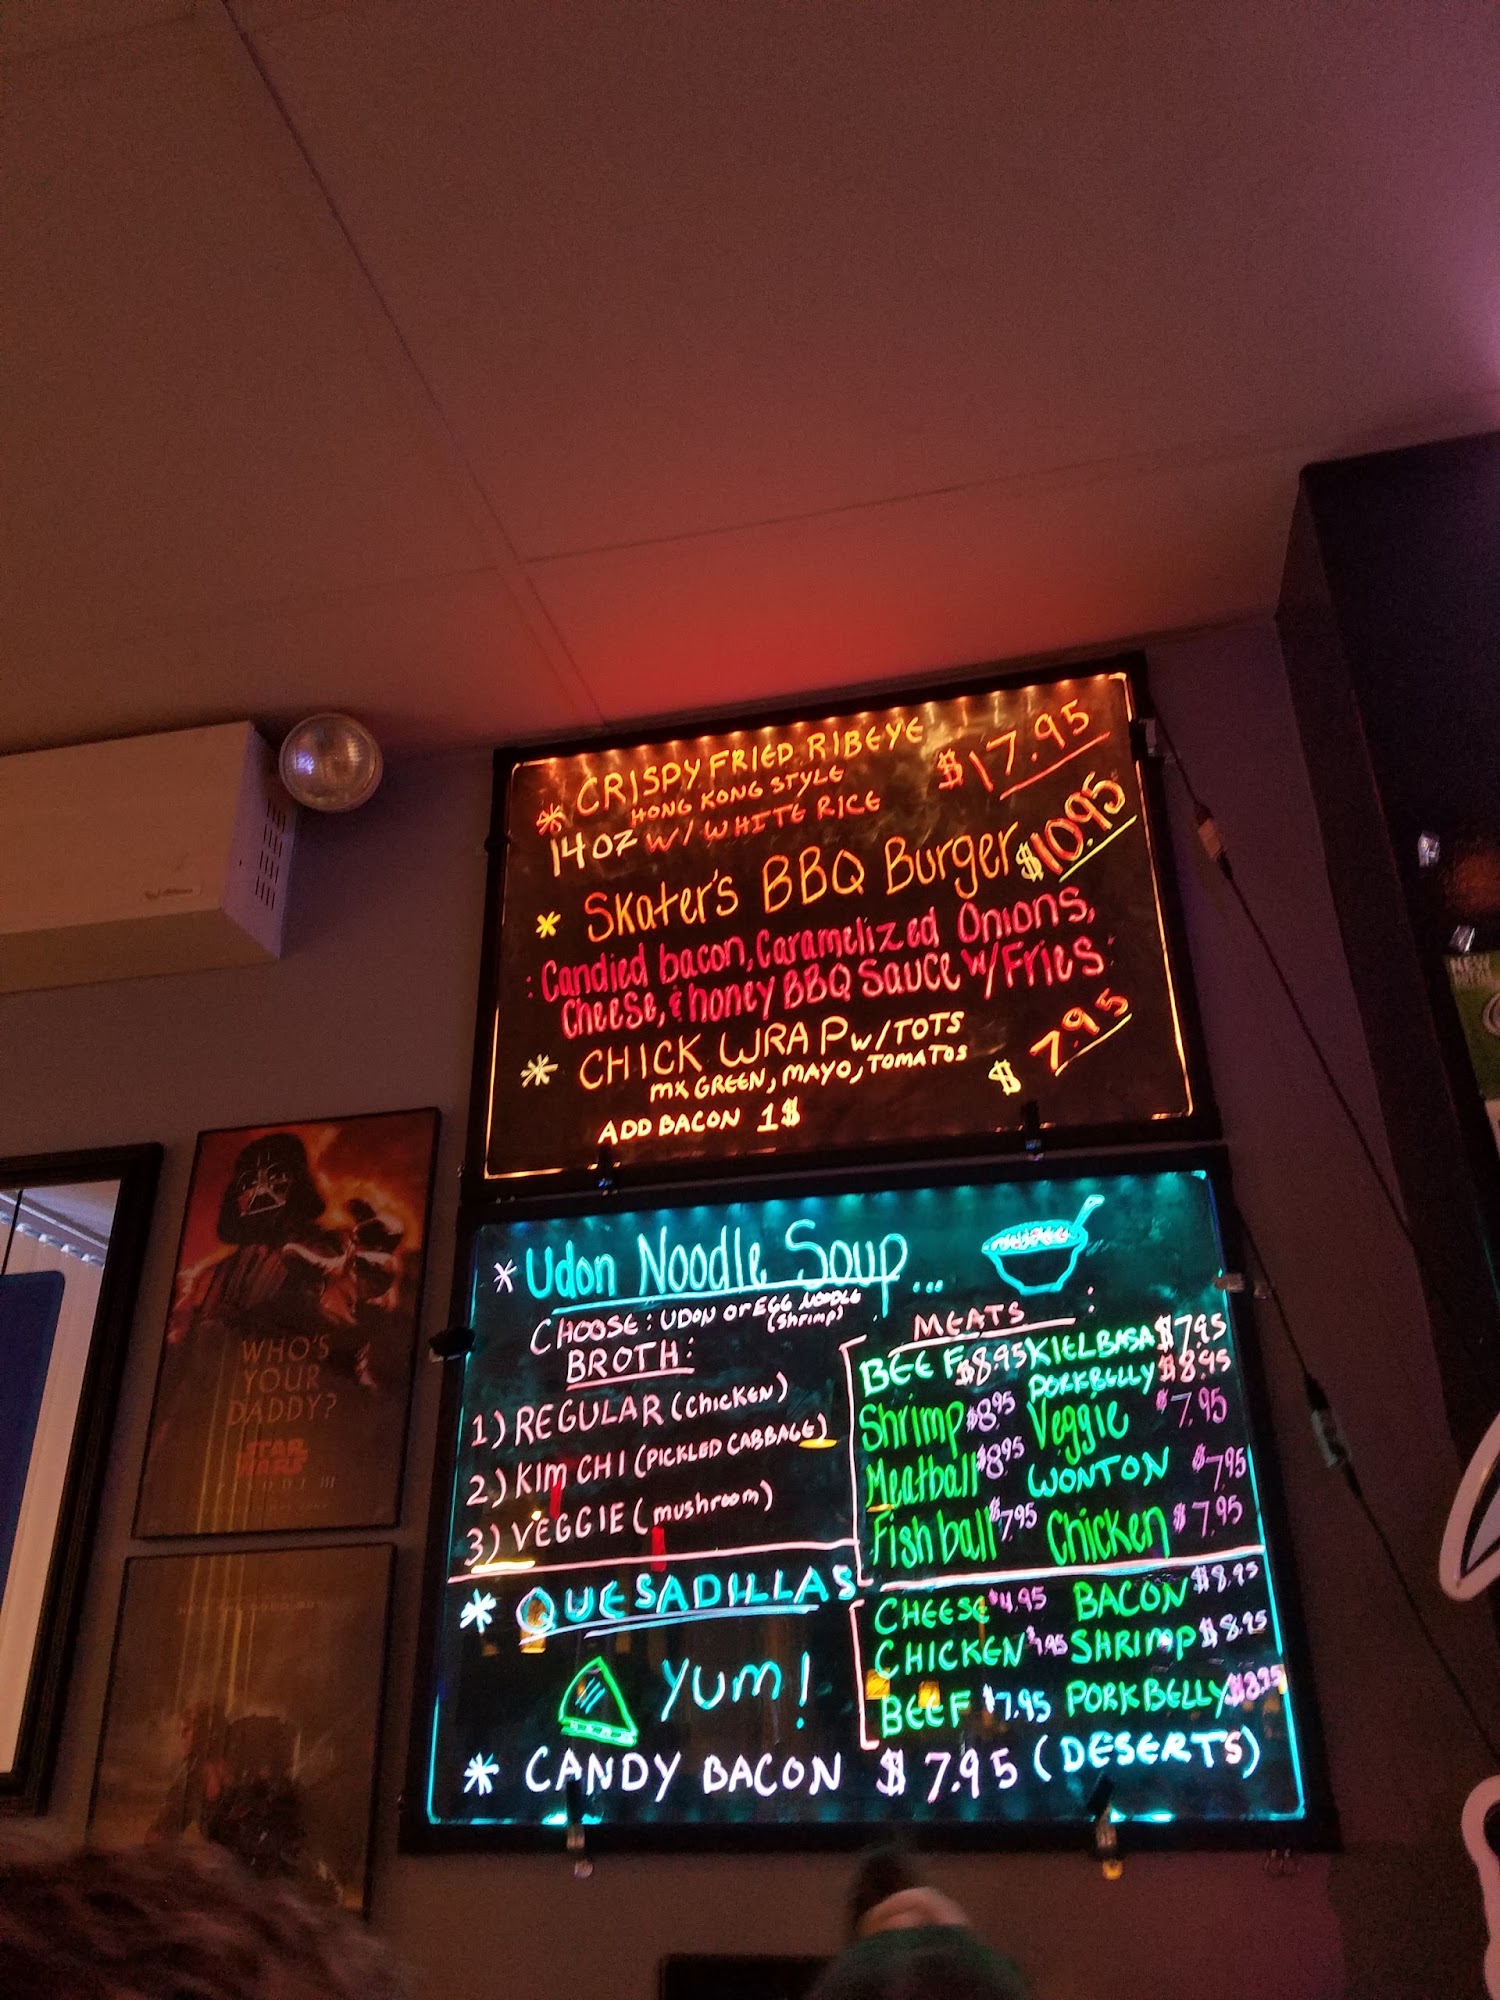 * CRISPY FRIED RIBEYE $17.95
HONG KONG STYLE
14 OZ W/ WHITE RICE
* Skater's BBQ Burger $10.95
: Candied bacon, Caramelized Onions,
Cheese, & honey BBQ Sauce w/ Fries
* CHICK WRAP w/TOTS $7.95
MX GREEN, MAYO, TOMATOS
ADD BACON 1$
* Udon Noodle Soup...
CHOOSE: UDON or EGG NOODLE
(Shrimp)
BROTH:
1) REGULAR (chicken)
2) KIM CHI (PICKLED CABBAGE)
3) VEGGIE (mushroom)
MEATS :
BEEF $8.95 KIELBASA $7.95
PORKBELLY $8.95
Shrimp $8.95 Veggie $7.95
Meatball $8.95 WONTON $7.95
Fish ball $7.95 Chicken $7.95
* QUESADILLAS
Yum!
CHEESE $4.95 BACON $8.95
CHICKEN $7.95 SHRIMP $8.95
BEEF $7.95 PORKBELLY $8.95
* CANDY BACON $7.95 (DESERTS)
WHO'S
YOUR
DADDY?
STAR
WARS
EPISODE III